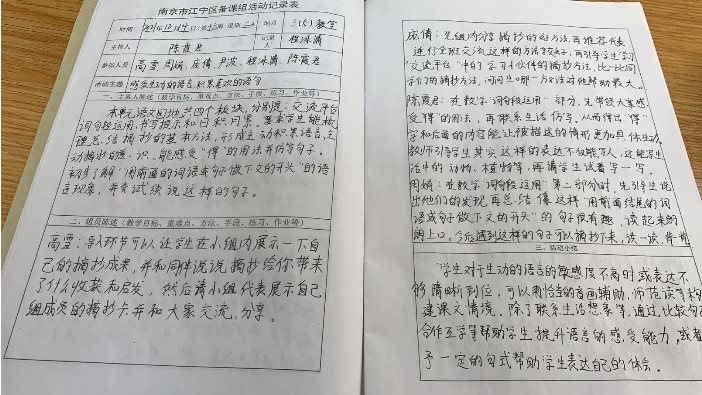 南京市江宁区备课组活动记录表
时间 2021年12月14日(第十六周 星期二) 地点 三(5)教室
主持人 陈霞君 记录人 程冰清
参加人员 高雪、周娟、庞倩、尹茂、程冰清、陈霞君
活动主题 感受生动的语言,积累喜欢的语句
一、主备人陈述(教学目标、重难点、方法、手段、练习、作业等)
本单元语文园地共四个板块,分别是:交流平台
词句段运用、书写提示和日积月累。要求学生能梳
理总结摘抄的基本方法,形成主动积累语言,主
动摘抄的意识。能感受“得”的用法并仿写句子。
初步了解“用前面的词语或句子做下文的开头”的语
言现象,并尝试续说这样的句子。
二、组员陈述(教学目标、重难点、方法、手段、练习、作业等)
高雪:导入环节可以让学生在小组内展示一下自
己的摘抄成果,并和同伴说说摘抄给你带来
了什么收获和启发,然后请小组代表展示自己
组成员的摘抄卡并和大家交流,分享。
庞倩:先组内分享摘抄的好方法,再推荐代表
进行全班交流,这样的方法
交流平台”中的学习小伙伴的摘抄方法,比一比同
学们的摘抄方法,问问生哪一方法对他帮助最大。
陈霞君:在教学“词句段运用”部分,先带领大家感
受“得”的用法,再联系生活仿写,从而得出“得”
字和后面的内容能让被描述的情形更加具体生动。
教师引导学生其实这样的表达不仅能写人,还能写生
活中的动物、植物等,再请学生试着写一写。
周娟:在教学“词句段运用”第二部分时,先引导生说
出他们的发现,再总结像这样“用前面结尾的词
语或句子做下文的开头”的句子很有趣,读起来朗
朗上口,今后遇到这样的句子可以摘抄下来,读一读,背一背
三、活动小结
学生对于生动的语言的敏感度不高时或表达不
够清晰到位,可以用恰当的音画辅助,师范读等构
建课文情境。除了联系生活想象等,通过比较句子
合作互学等帮助学生提升语言的感受能力,或者
予一定的句式帮助学生表达自己的体会。